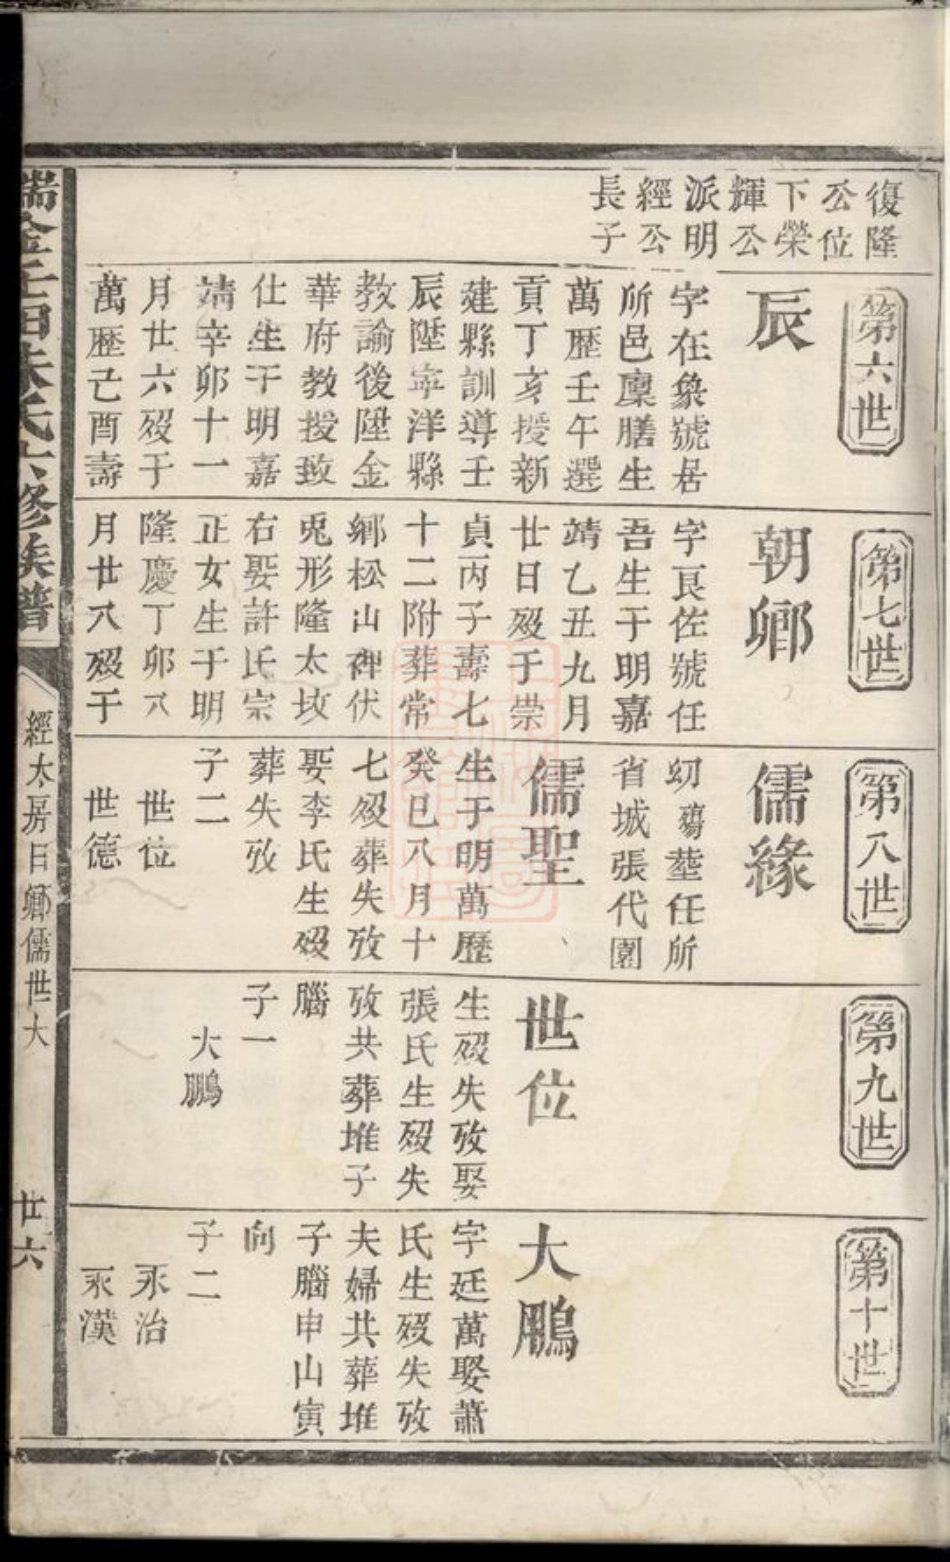 復隆
公位
下榮
輝公
派明
經公
長子
第六世
辰
字在象號居
所邑廩膳生
萬歷壬午選
貢丁亥授新
建縣訓導壬
辰陞寧洋縣
教諭後陞金
華府教授致
仕生于明嘉
靖辛卯十一
月廿六歿于
萬歷己酉壽
第七世
朝卿
字良佐號任
吾生于明嘉
靖乙丑九月
廿日歿于崇
貞丙子壽七
十二附葬常
鄉松山裨伏
兎形隆太坟
右娶許氏宗
正女生于明
隆慶丁卯六
月廿八歿于
第八世
儒緣
幼殤塟任所
省城張代園
儒聖
生于明萬歷
癸巳八月十
七歿葬失攷
娶李氏生歿
葬失攷
子二
世位
世德
第九世
世位
生歿失攷娶
張氏生歿失
攷共葬堆子
腦
子一
大鵬
第十世
大鵬
字廷萬娶蕭
氏生歿失攷
夫婦共葬堆
子腦申山寅
向
子二
永治
永漢
瑞金壬田朱氏六修族譜
經太房日卿儒世大
廿六